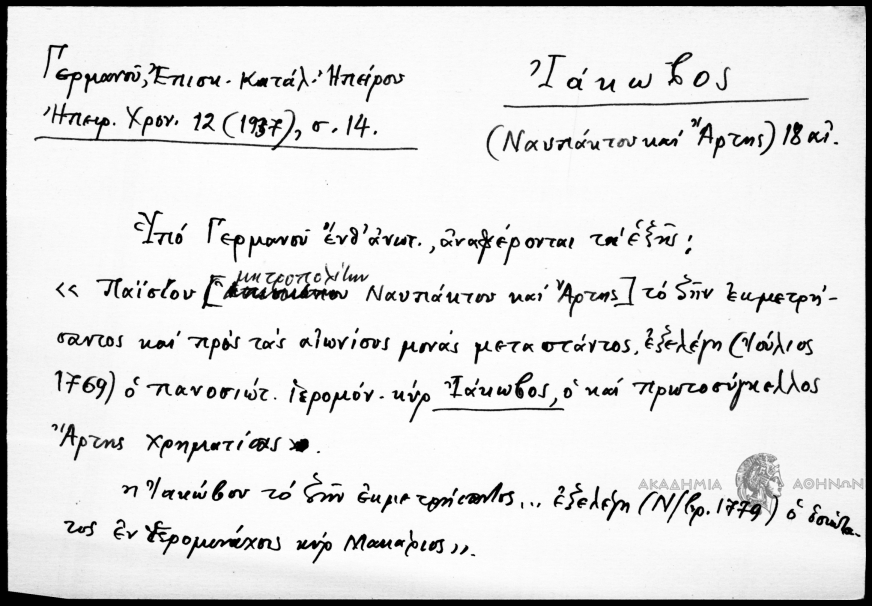 Γερμανοῦ, Ἐπισκ. Κατάλ. Ἠπείρου
Ἠπειρ. Χρον. 12 (1937), σ. 14.
Ἰάκωβος
(Ναυπάκτου καὶ Ἄρτης) 18 αἰ.
Ὑπό Γερμανοῦ ἔνθ' ἀνωτ., ἀναφέρονται τὰ ἑξῆς:
μητροπολίτου
« Παϊσίου [Ναυπάκτου καὶ Ἄρτης] τό ζῆν ἐκμετρή-
σαντος καὶ πρός τάς αἰωνίους μονάς μεταστάντος, ἐξελέγη (Ἰούλιος
1769) ὁ πανοσιώτ. ἱερομόν. κύρ Ἰάκωβος, ὁ καί πρωτοσύγκελλος
Ἄρτης χρηματίσας».
"Ἰακώβου τό ζῆν ἐκμετρήσαντος... ἐξελέγη (Ν/βρ. 1779) ὁ ὁσιώτα-
τος ἐν ἱερομονάχοις κύρ Μακάριος».
ΑΚΑΔΗΜΙΑ ΑΘΗΝΩΝ